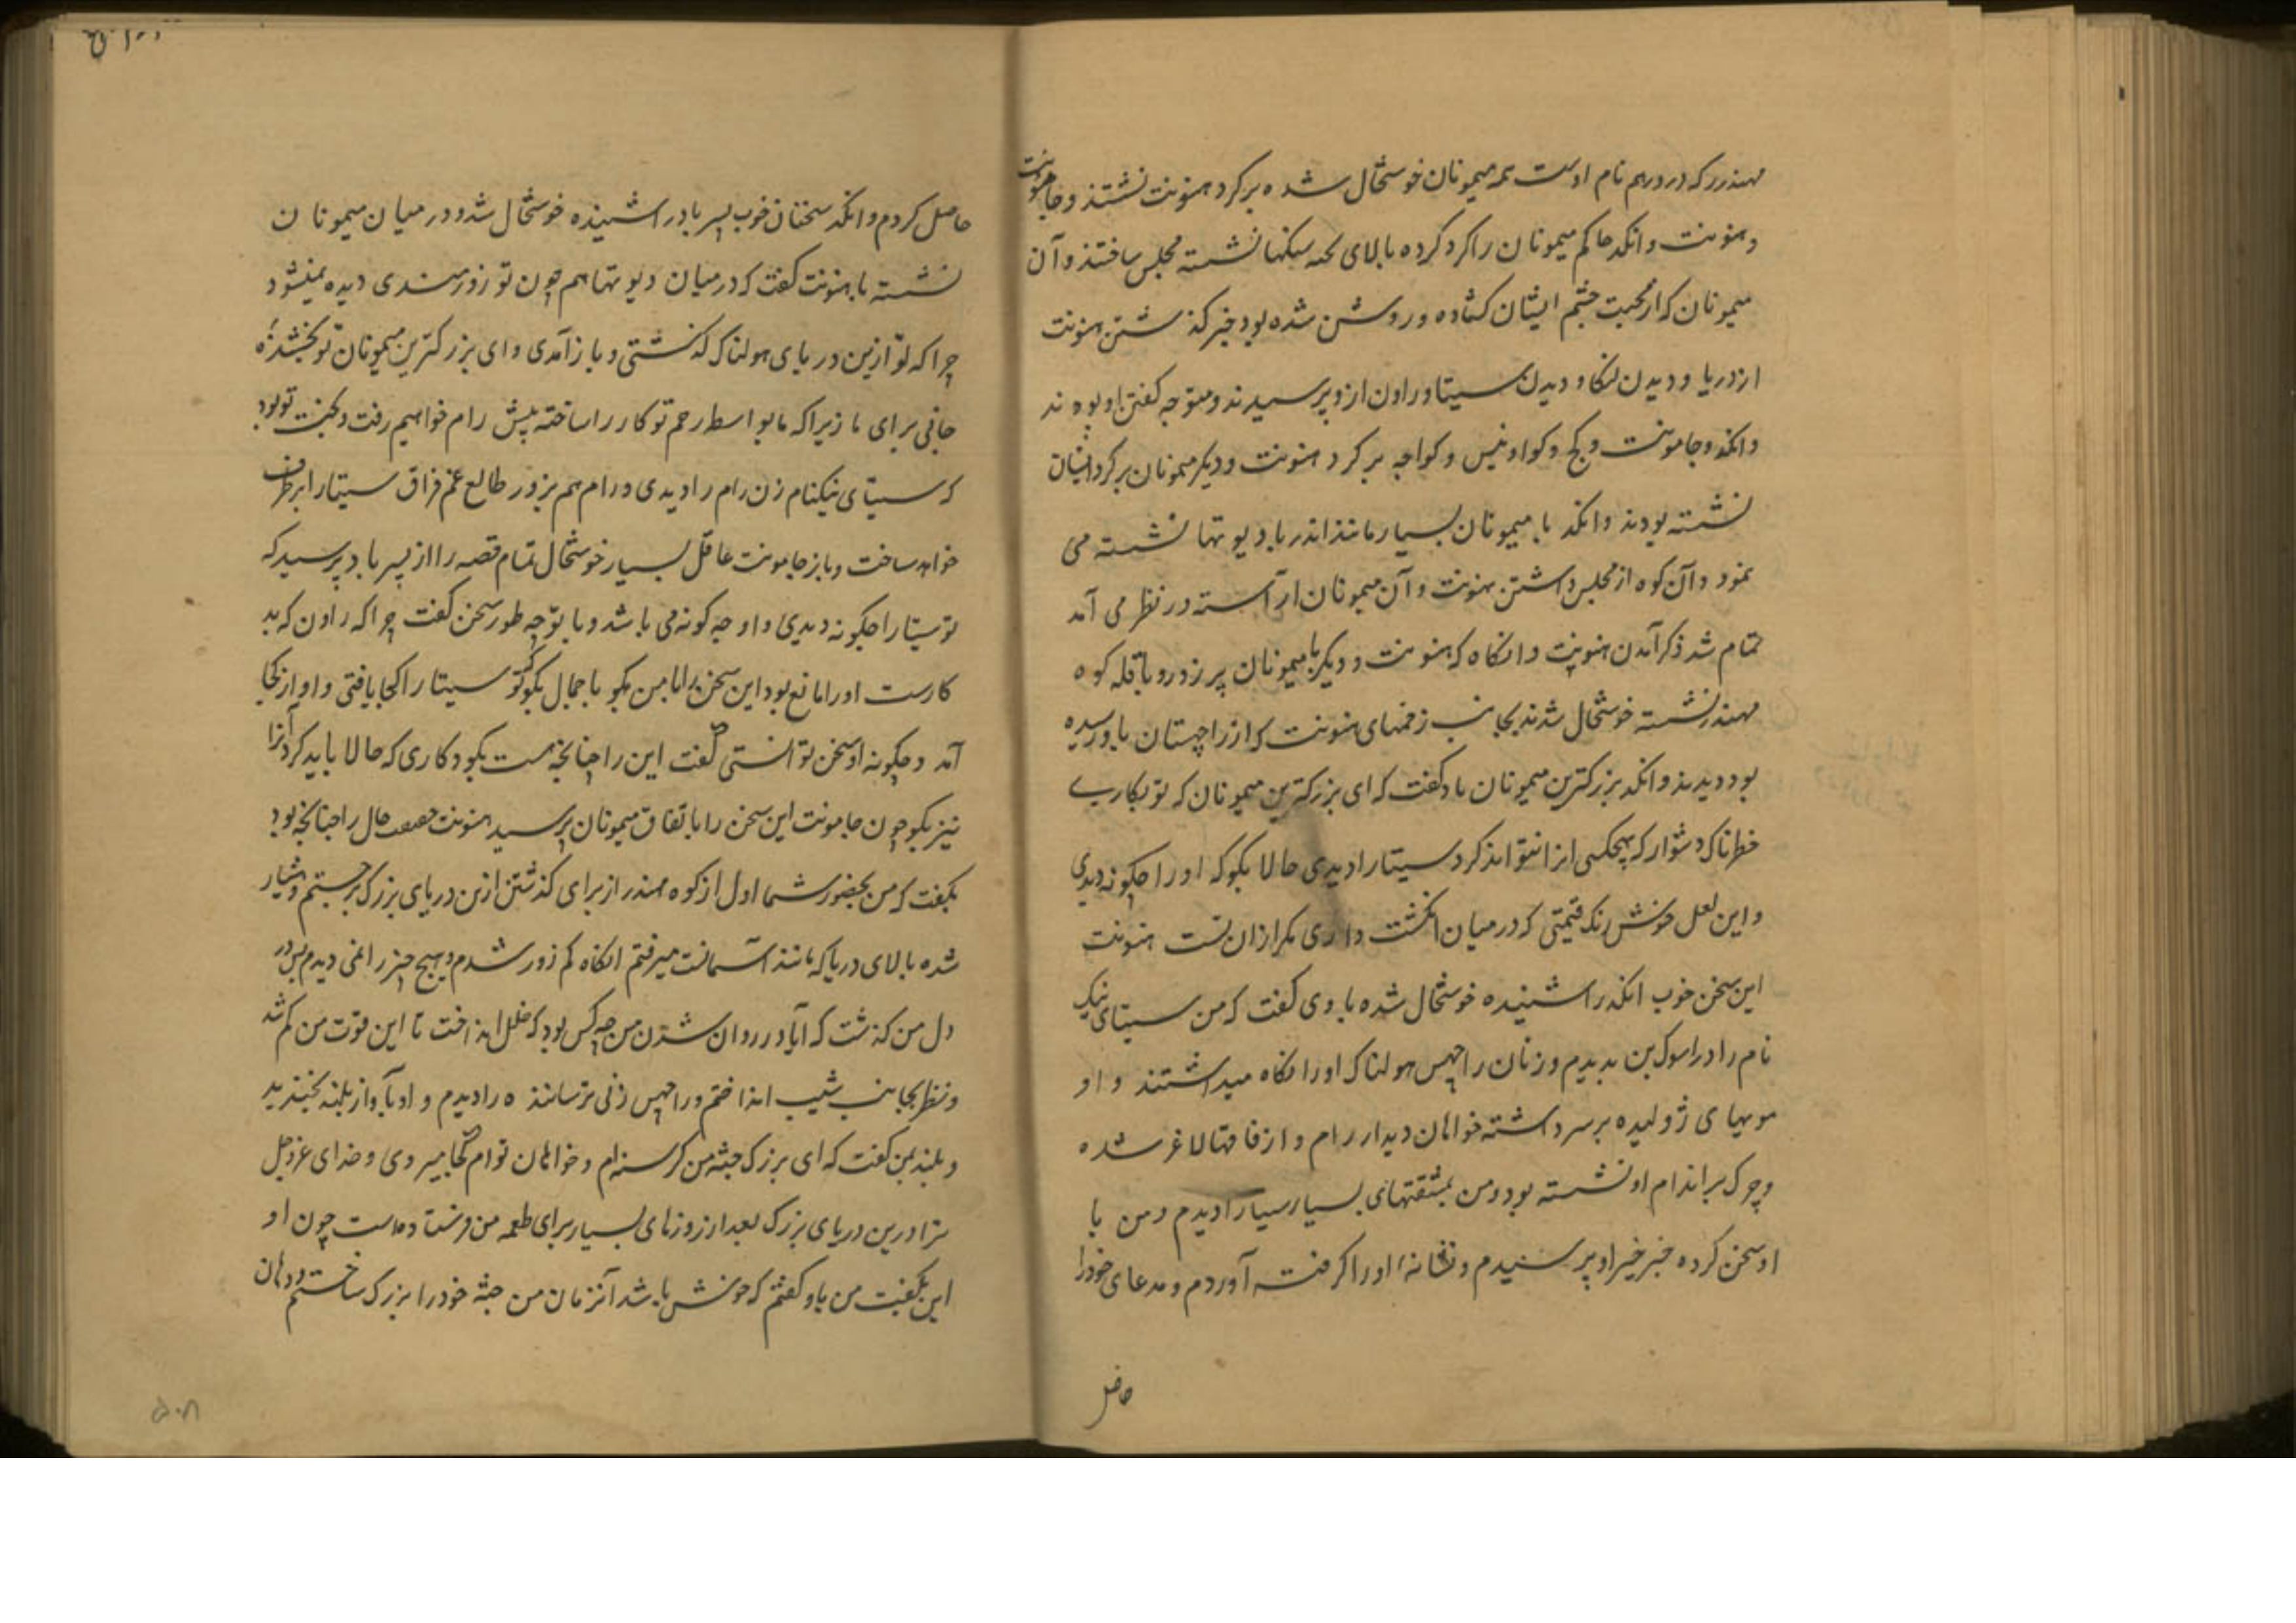 مهندر که در دریم نام اوست همه میمونان خوشحال شده برگرد هنونت نشستند و جامونت
و هنونت و انکد حاکم میمونان را گرد کرده بالای سنگها نشسته مجلس ساختند و آن
میمونان که از محبت چشم ایشان گشاده و روشن شده بود خبر گذشتن هنونت
از دریا و دیدن لنکا و دیدن سیتا و راون ازو پرسیدند و متوجه گفتن او بودند
و انکد و جامونت و کج و کواو نیس و کواچه برگرد هنونت و دیگر میمونان برگرد ایشان
نشسته بودند و انکد با میمونان بسیار مانند اندر با دیوتها نشسته می
نمود و آن کوه از مجلس داشتن هنونت و آن میمونان آراسته در نظر می آمد
تمام شد ذکر آمدن هنونت و انگاه که هنونت و دیگر میمونان پر زور و با قله کوه
مهندر نشسته خوشحال شدند بجانب زخمهای هنونت که از راچهستان باو رسیده
بود دیدند و انکد بزرگترین میمونان باو گفت که ای بزرگترین میمونان که تو بکاری
خطرناک دشوار که هیچکس انرا نتواند کرد سیتا را دیدی حالا بگو که او را چگونه دیدی
و این لعل خوش رنگ قیمتی که در میان انگشت داری مگر ازان تست هنونت
این سخن خوب انکد را شنیده خوشحال شده با وی گفت که من سیتای نیک
نام را در اسوک بن بدیدم و زنان راچهس هولناک او را نگاه میداشتند و او
مویهای ژولیده بر سر داشته خواهان دیدار رام و از فاقها لاغر شده
و چرک بر اندام او نشسته بود و من بمشقتهای بسیار سیتا را دیدم و من با
او سخن کرده خبر خیر او پرسیدم و نشانه او را گرفته آوردم و مدعای خود را
حاصل
حاصل کردم و انکد سخنان خوب پسر باد را شنیده خوشحال شد و در میان میمونان
نشسته با هنونت گفت که در میان دیوتها هم چون تو زورمندی دیده نمیشود
چرا که تو ازین دریای هولناک گذشتی و باز آمدی و ای بزرگترین میمونان تو بخشنده
جانی برای ما زیرا که ما بواسطه رحم تو کار را ساخته پیش رام خواهیم رفت و بخت تو بود
که سیتای نیکنام زن رام را دیدی و رام هم بزور طالع غم فراق سیتا را برطرف
خواهد ساخت و باز جامونت عاقل بسیار خوشحال تمام قصه را از پسر باد پرسید که
تو سیتا را چگونه دیدی و او چه گونه می باشد و با تو چه طور سخن گفت چرا که راون که بد
کارست او را مانع بود این سخن را با من بگو با جمال بگو که تو سیتا را کجا یافتی و او از کجا
آمد و چگونه او سخن توانستی گفت این را چنانچه هست بگو و کاری که حالا باید کرد آنرا
نیز بگو چون جامونت این سخن را باتفاق میمونان پرسید هنونت حقیقت حال را چنانچه بود
بگفت که من بحضور شما اول از کوه مهندر از برای گذشتن ازین دریای بزرگ برجستم و هشیار
شده بالای دریا که مانند آسمانست میرفتم انگاه کم زور شدم و هیچ چیز را نمی دیدم پس در
دل من گذشت که آیا در روان شدن من چه کس بود که خلل انداخت تا این قوت من کم شد
و نظر بجانب شیب انداختم و راچهس زنی ترساننده را دیدم و او بآواز بلند بخندید
و بلند بمن گفت که ای بزرگ جثه من گرسنه ام و خواهان توام کجا میروی و خدای عزوجل
ترا درین دریای بزرگ بعد از روزهای بسیار برای طعمه من فرستاده است چون او
این بگفت من باو گفتم که خوش باشد آنزمان من جثه خود را بزرگ ساختم و دهان
۵۰۸